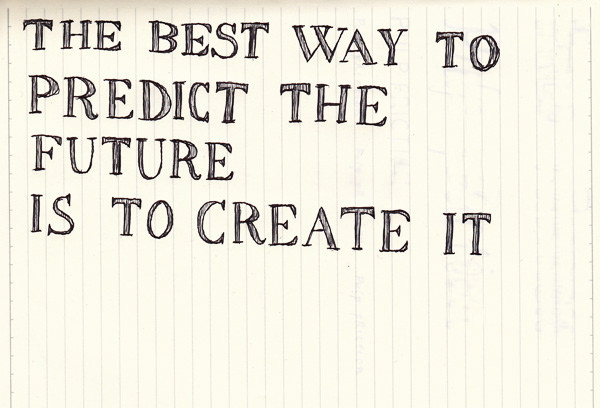 THE BEST WAY TO
PREDICT THE
FUTURE
IS TO CREATE IT